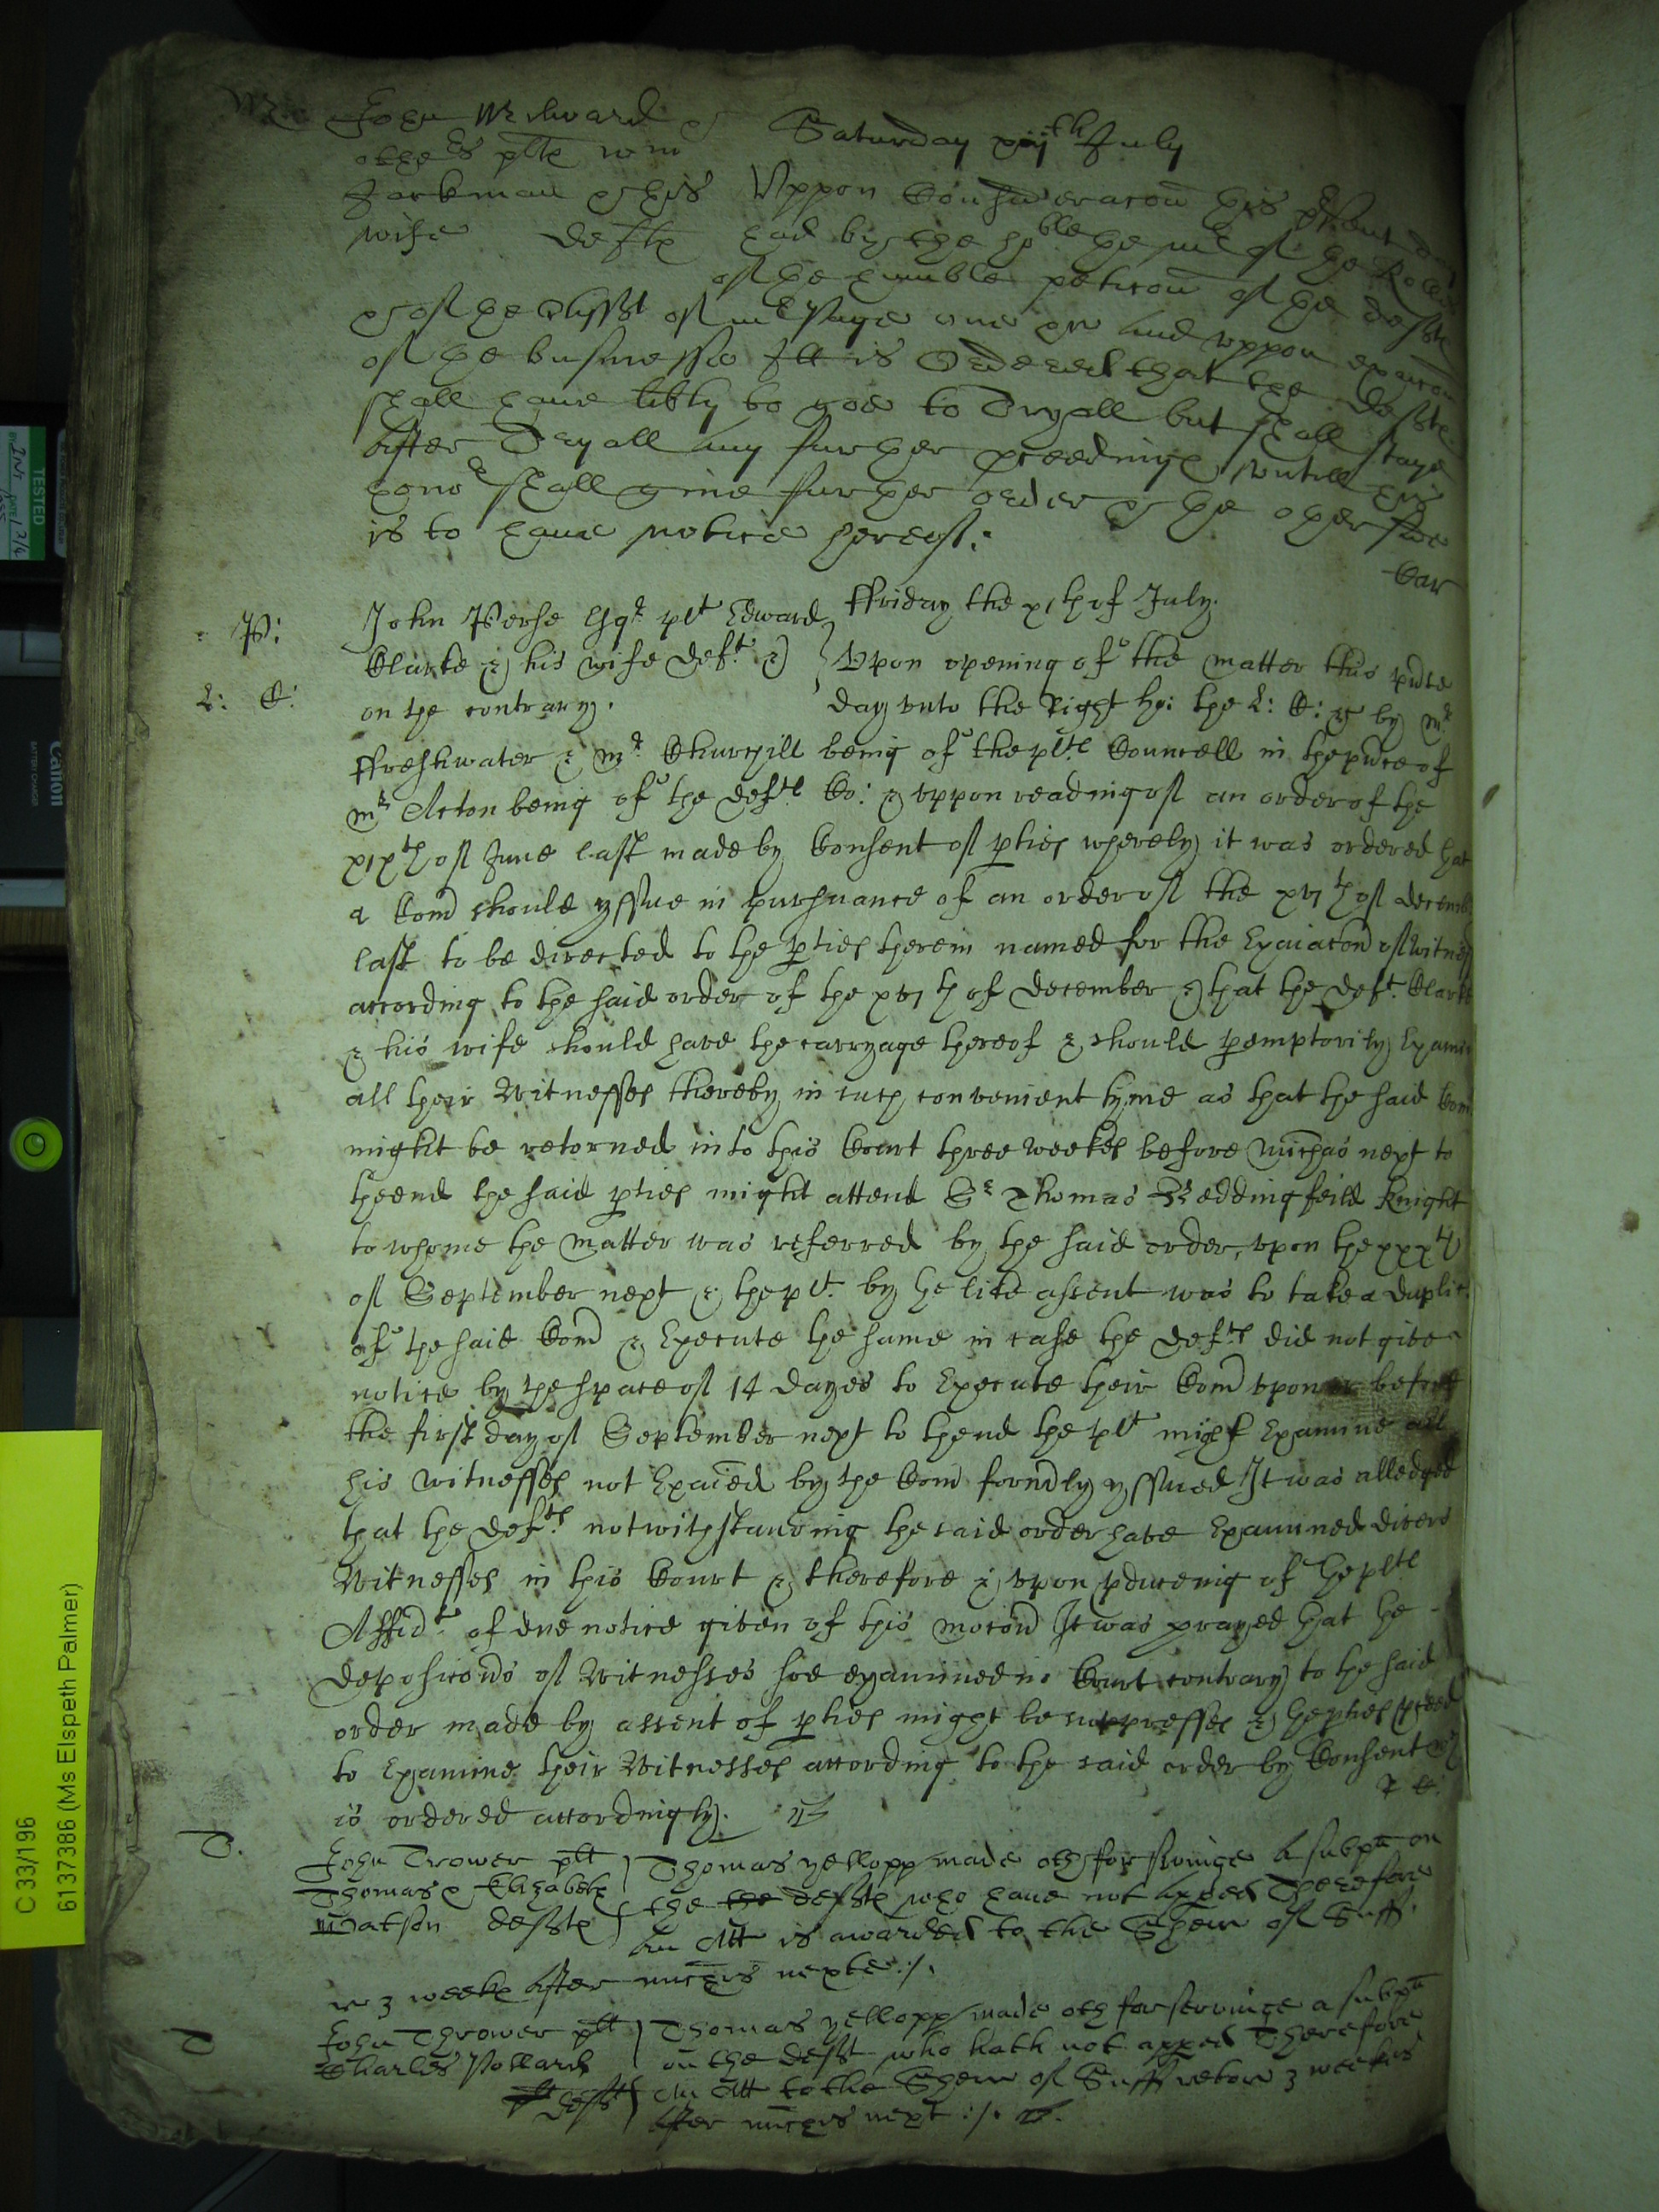 John Milward &
others pltes Wm
Jackman & his
wife defts
Saturday xiijth July
Uppon Consideracon this present day
had by the ho:ble the mr of the Rolles
of the humble peticon of the defts
& of the Affidt of
of the businesse Itt is Ordered that the defts
shall have libty to goe to Tryall but shall staye
after Tryall any further proceedings untill his
honor shall give further order & the other side
is to have notice hereof:
Car
P:
L: C:
John Perse Esqr plt Edward
Clarke & his wife deft &
on the contrary.
ffriday the xijth of July.
Upon opening of the matter this pnte
day unto the Right ho: the L: C: by mr
ffreshwater & mr Churchill being of the plts Councell in the pnce of
mr Acton being of the defts Co: & uppon reading of an order of the
xixth of June last made by Consent of pties whereby it was ordered that
a Comd should yssue in pursuance of an order of the xvjth of decemb
last to be directed to the pties therein named for the Exaiacon of witnes
according to the said order of the xvjth of december & that the deft Clarke
& his wife should have the carryage thereof & should pemptorily Examine
all their Witnesses thereby in such convenient tyme as that the said Comd
might be retorned into this Court three weekes before michas next to
theend the said pties might attend Sr Thomas Beddingfeild Knight
to whome the matter was referred by the said order, upon the xxxth
of September next & the plt by the like assent was to take a duplic
of the said Comd & Execute the same in case the defts did not give
notice by the space of 14 dayes to Execute their Comd upon or before
the first day of September next to thend the plt might Examine all
his witnesses not Exaied by the Comd formdly yssued It was alledged
that the defts notwithstanding the said order have Examined divers
Witnesses in this Court & therefore & upon pduceing of the plts
Affidt of due notice given of this mocon It was prayed that the
deposicons of Witnesses soe examined in Court contrary to the said
order made by assent of pties might be suppressed & the pties pceed
to Examine their Witnesses according to the said order by Consent wch
is ordered accordingly.
T.
John Trower plt
Thomas & Elizabeth
Watson defts
Thomas yellopp made oth for servinge A subpa on
the the defts who have not apped Therefore
An Att is awarded to the Sherr of Suff.
r 3 weeks After michis nexte :/.
T
John Thrower plt
Charles Pollard
deft
Thomas yellopp made oth for servinge a subpa
on the deft who hath not apped Therefore
An Att to the Sherr of Suff retor 3 weekes
After michis next :/.
C 33/196
61373786 (Ms Elspeth Palmer)
TESTED
Canon
BATTERY CHARGER